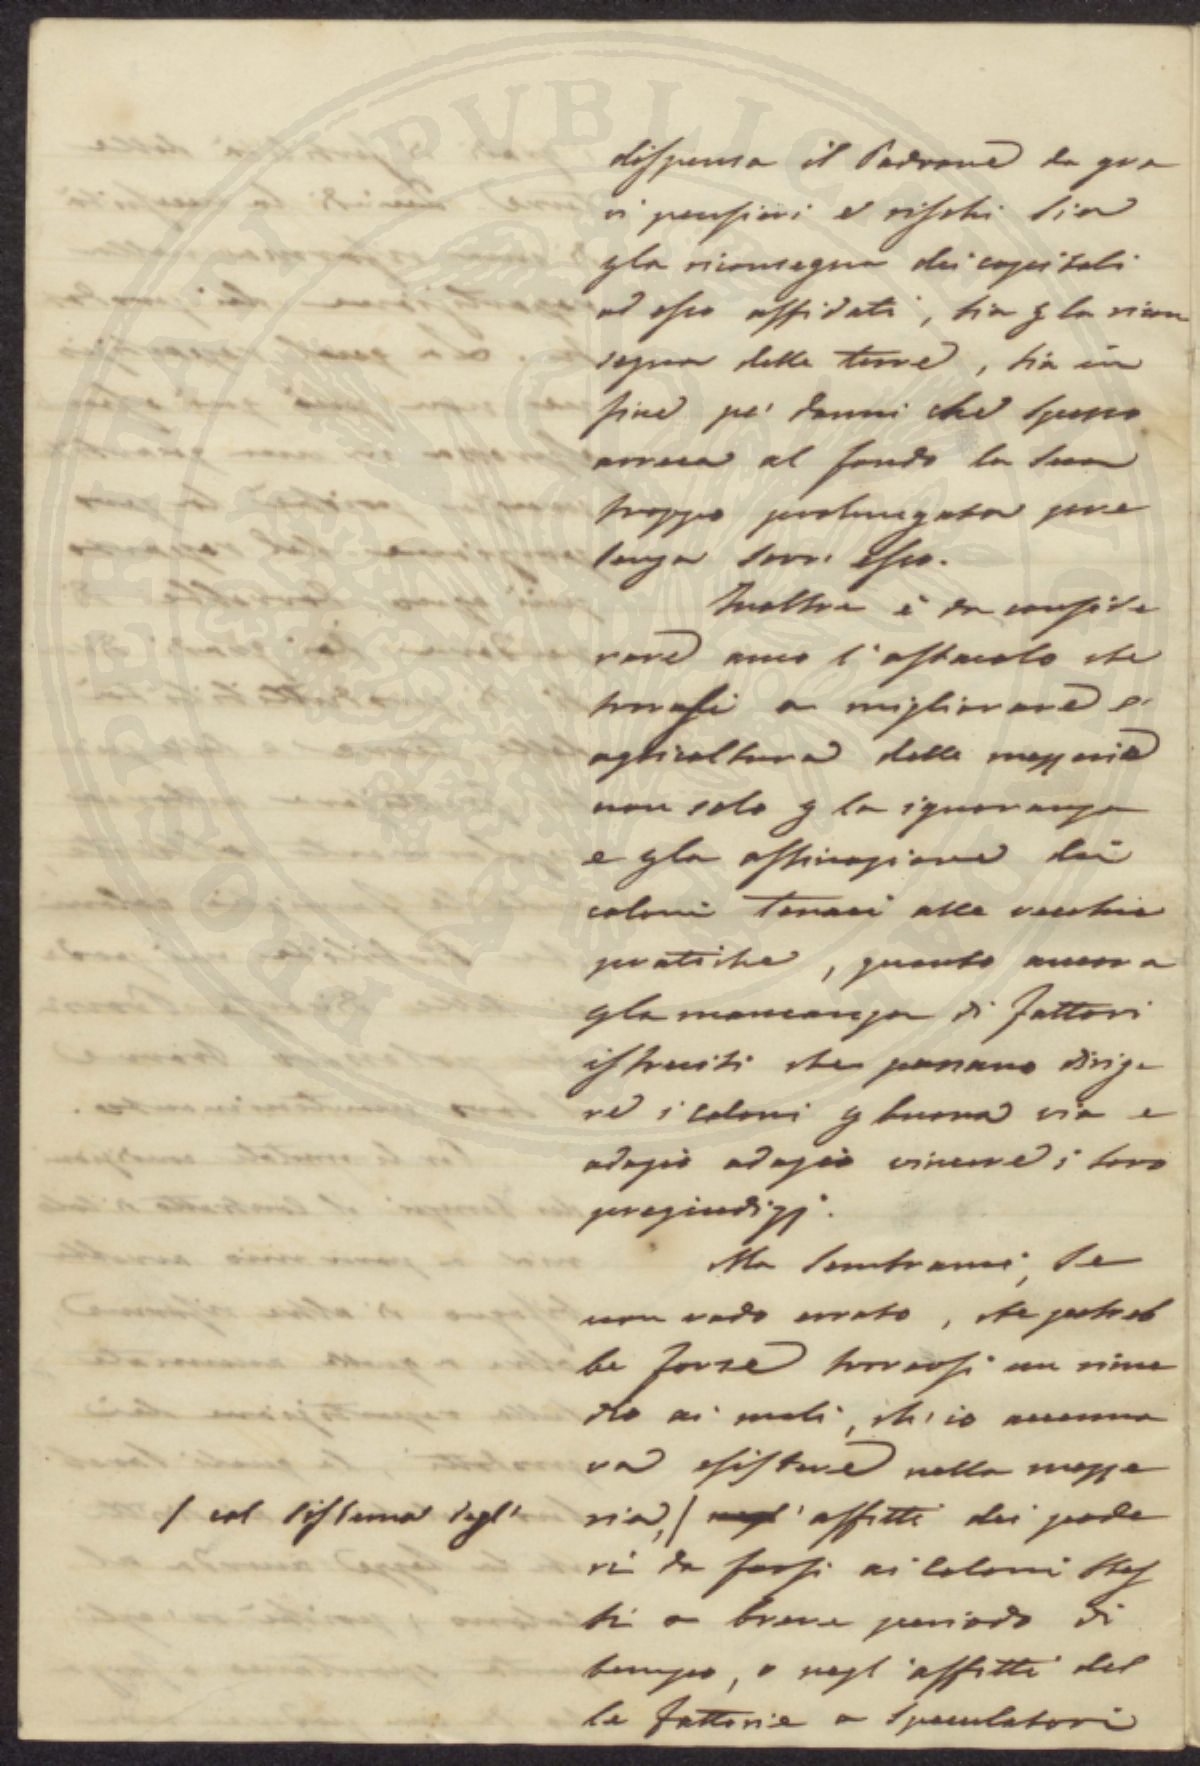 dispensa il Padrone da gra
vi pensieri e rischi sia
p la riconsegna dei capitali
ad esso affidati, sia p la ricon
segna delle terre, sia in
fine pe' danni che spesso
arreca al fondo la sua
troppo prolungata pre
senza sovr' esso.
Inoltre è da conside
rare anco l'ostacolo che
trovasi a migliorare l'
agricoltura delle mezzerie
non solo p la ignoranza
e p la ostinazione dei
coloni tenaci alle vecchie
pratiche, quanto ancora
p la mancanza di fattori
istruiti che possano dirige
re i coloni p buona via e
adagio adagio vincere i loro
pregiudizj.
Ma sembrami, se
non vado errato, che potreb
be forse trovarsi un rime
dio ai mali, ch'io accenna
va esistere nella mezze
ria,/ negl' affitti dei pode
/ col sistema degl'
ri da farsi ai coloni stes
si a breve periodo di
tempo, o negl'affitti del
le fattorie a speculatori
PUBLICI PERICULI